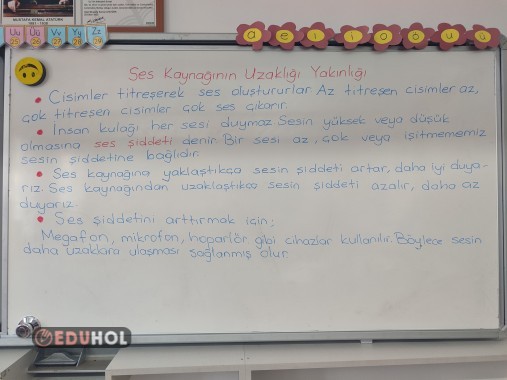 MUSTAFA KEMAL ATATÜRK
1881 - 1938
Uu Üü Vv Yy Zz
25 26 27 28 29
a e ı i o ö u ü
Ses Kaynağının Uzaklığı Yakınlığı
• Cisimler titreşerek ses oluştururlar. Az titreşen cisimler az,
çok titreşen cisimler çok ses çıkarır.
• İnsan kulağı her sesi duymaz. Sesin yüksek veya düşük
olmasına ses şiddeti denir. Bir sesi az, çok veya işitmememiz
sesin şiddetine bağlıdır.
• Ses kaynağına yaklaştıkça sesin şiddeti artar, daha iyi duya-
rız. Ses kaynağından uzaklaştıkça sesin şiddeti azalır, daha az
duyarız.
• Ses şiddetini arttırmak için;
Megafon, mikrofon, hoparlör gibi cihazlar kullanılır. Böylece sesin
daha uzaklara ulaşması sağlanmış olur.
EDUHOL